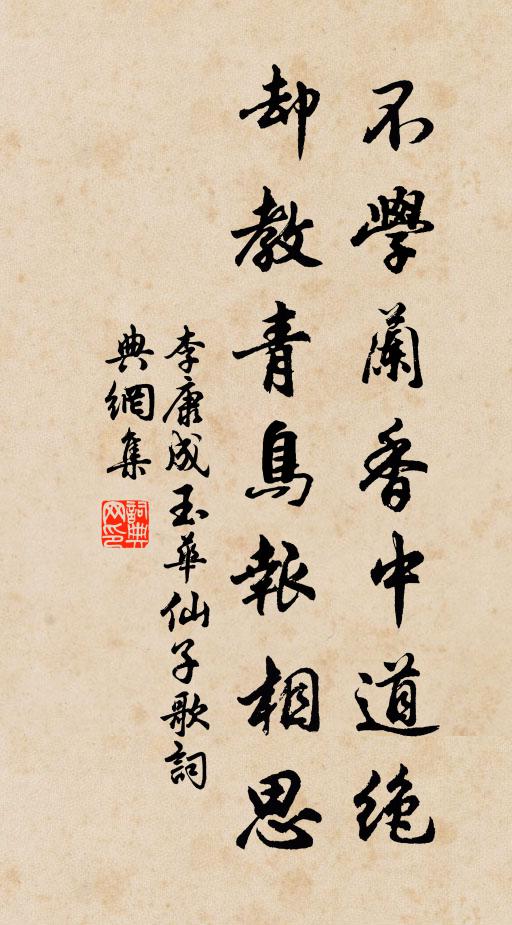 不學蘭香中道絕
却教青鳥報相思
李康成玉華仙子歌詞
典網集
詞典網印